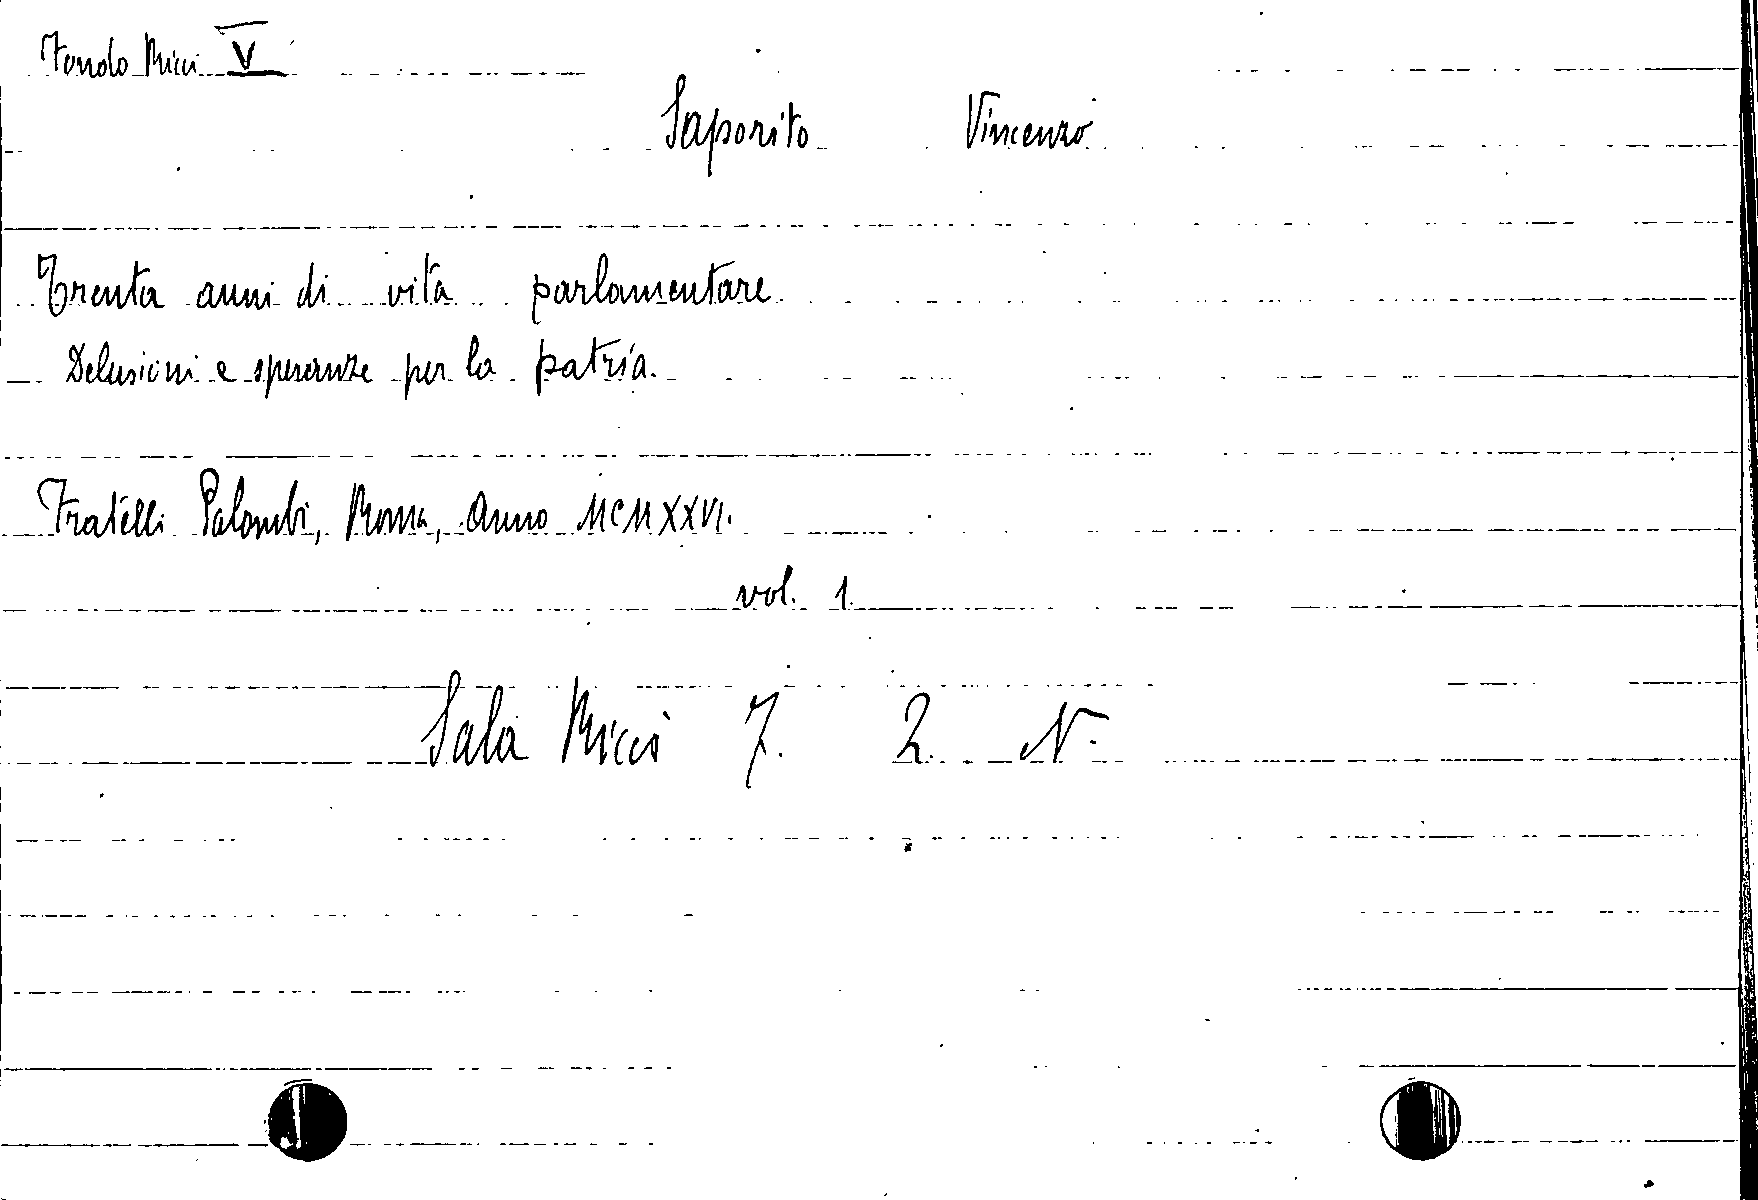 Fondo Ricci V
Saporito Vincenzo
Trenta anni di vita parlamentare
Delusioni e speranze per la patria.
Fratelli Palombi, Roma, Anno MCMXXVI.
vol. 1.
Sala Ricci 7. 2. N.